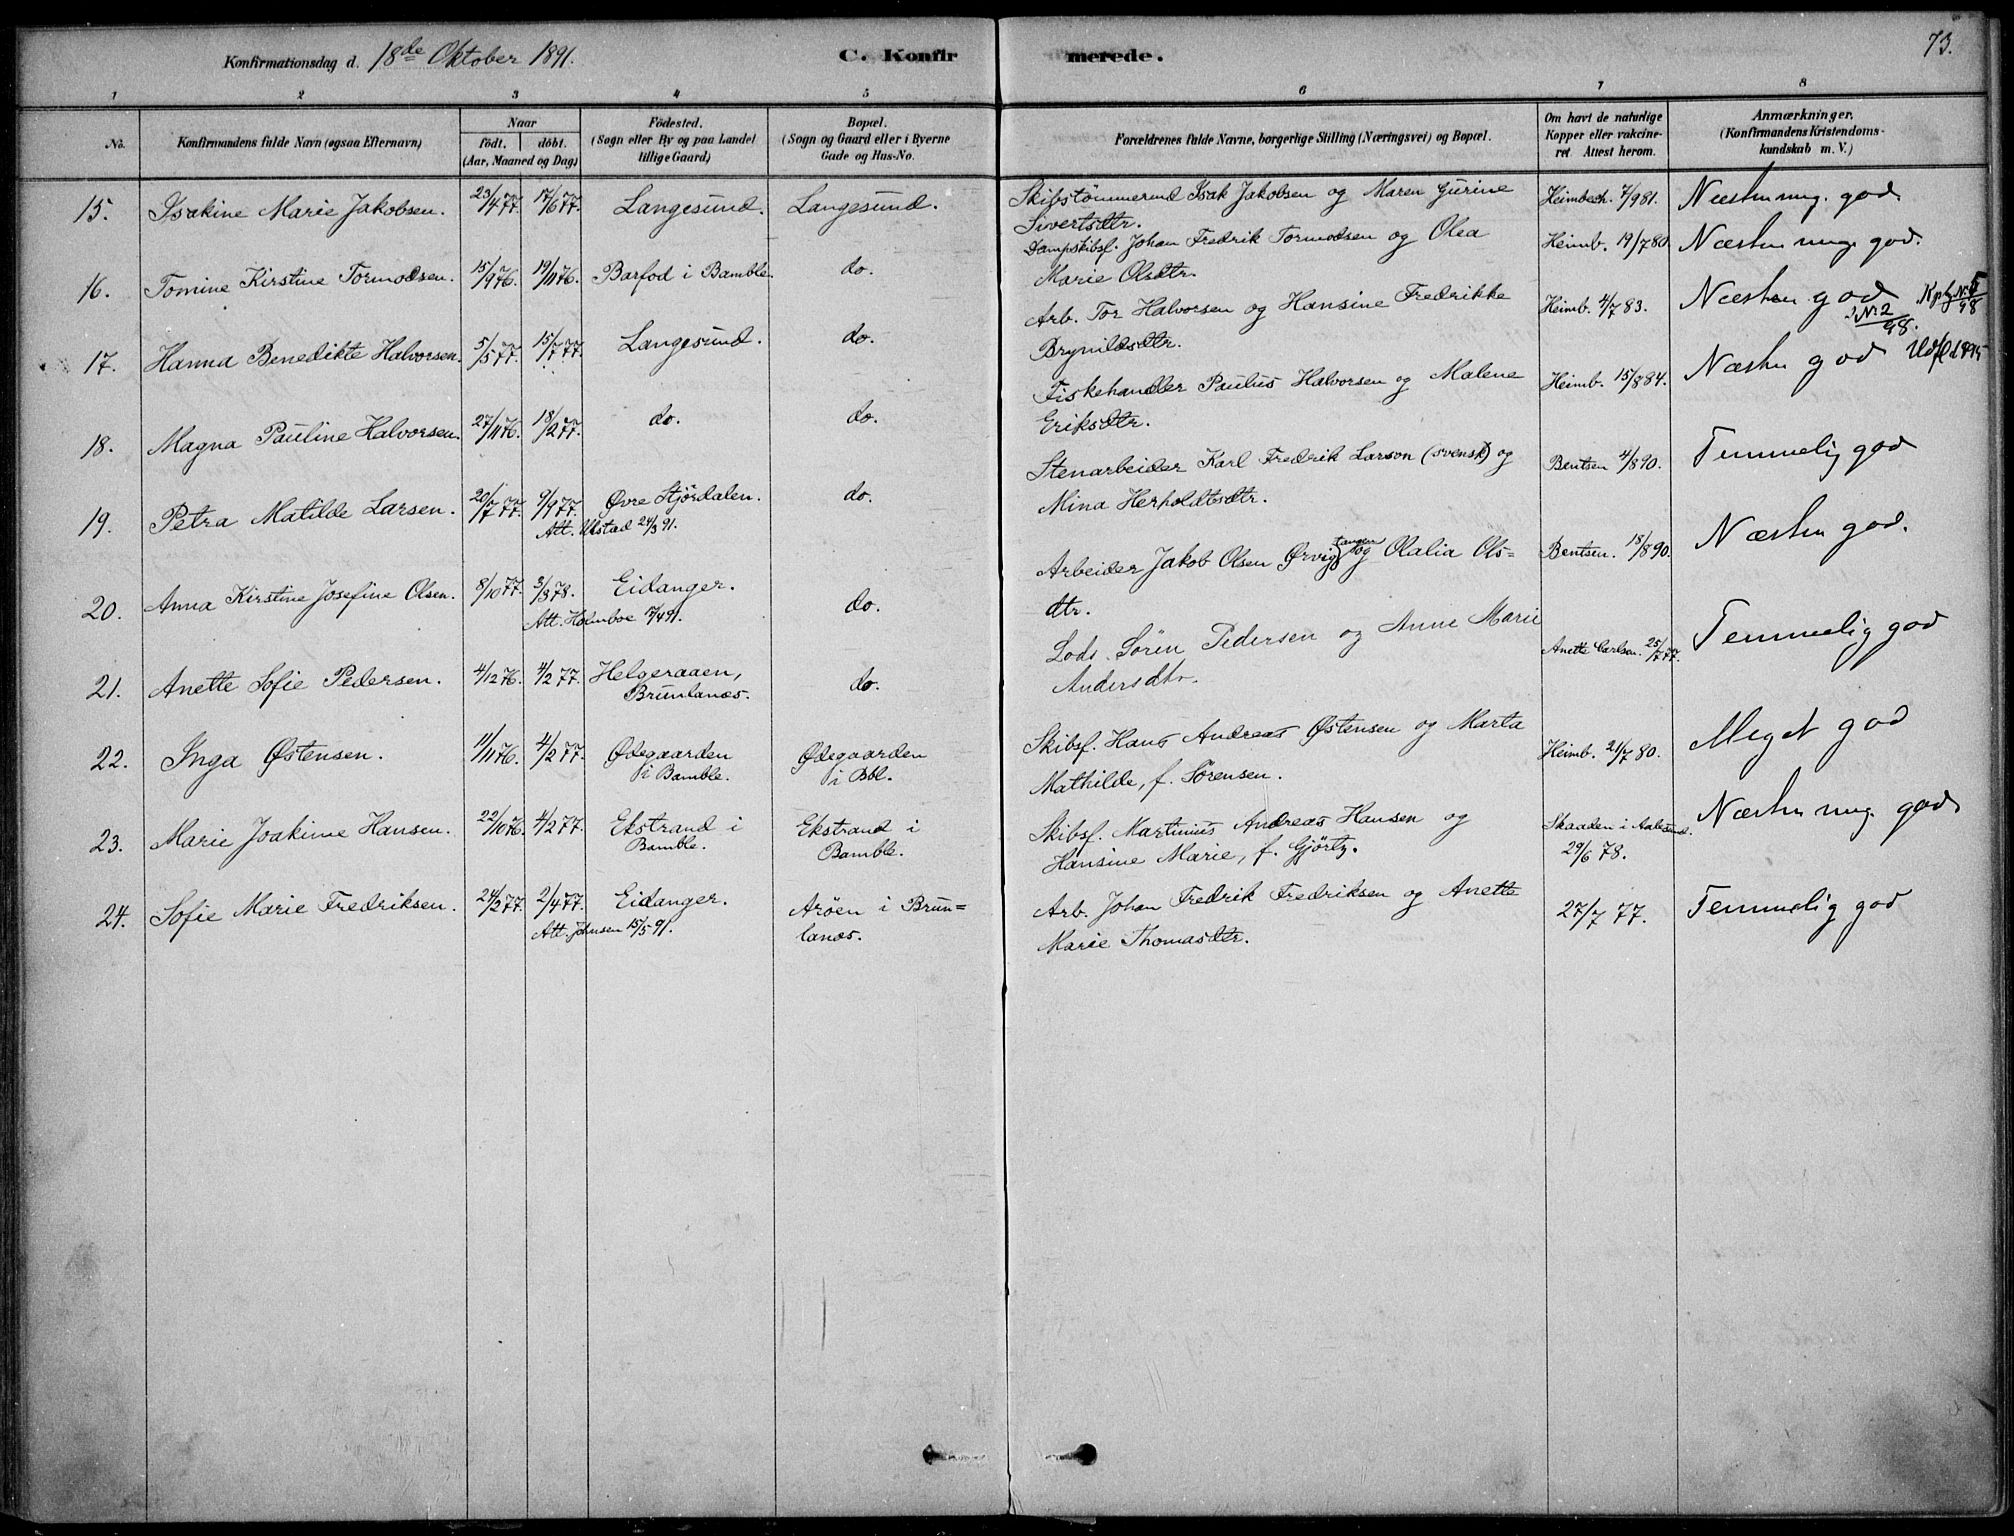 73.
Konfirmationsdag d. 18de Oktober 1891. C. Konfirmerede.
1 2 3 4 5 6 7 8
No. Konfirmandens fulde Navn (ogsaa Efternavn) Naar födt. döbt. (Aar, Maaned og Dag) Födested. (Sogn eller By og paa Landet tillige Gaard) Bopæl. (Sogn og Gaard eller i Byerne Gade og Hus-No. Forældrenes fulde Navne, borgerlige Stilling (Næringsvei) og Bopæl. Om havt de naturlige Kopper eller vakcineret Attest herom. Anmærkninger. (Konfirmandens Kristendomskundskab m. V.)
15. Isakine Marie Jakobsen. 23/4 77. 17/6 77. Langesund. Langesund. Skibstömmermd Isak Jakobsen og Maren Gurine Heimbech. 7/9 81. Næsten mg. god.
Sivertsdtr.
16. Tomine Kirstine Tormodsen. 15/9 76. 19/11 76. Barfod i Bamble. do. Dampskibsf. Johan Fredrik Tormodsen og Olea Heimb. 19/7 80. Næsten mg. god.
Marie Olsdtr.
17. Hanna Benedikte Halvorsen. 5/5 77. 15/7 77. Langesund. do. Arb. Tor Halvorsen og Hansine Fredrikke Heimb. 4/7 83. Næsten god
Brynildsdtr. No. 2/98.
18. Magna Pauline Halvorsen. 27/11 76. 18/2 77. do. do. Fiskehandler Paulus Halvorsen og Malene Heimb. 15/8 84. Næsten god
Eriksdtr.
19. Petra Matilde Larsen. 20/7 77. 9/9 77. Øvre Stjördalen. do. Stenarbeider Karl Fredrik Larson (svensk) og Bentsen 4/8 90. Temmelig god
Att. Ulstad 24/3 91. Mina Herholdtsdtr.
20. Anna Kirstine Josefine Olsen. 8/10 77. 3/3 78. Eidanger. do. Arbeider Jakob Olsen Ørvigtangen og Olalia Ols= Bentsen. 18/8 90. Næsten god.
Att. Holmboe 7/4 91. dtr.
21. Anette Sofie Pedersen. 4/12 76. 4/2 77. Helgeraaen, do. Lods Sören Pedersen og Anne Marie Anette Carlsen. 25/7 77. Temmelig god
Brunlanæs. Andersdtr.
22. Inga Østensen. 11/11 76. 4/2 77. Ødegaarden Ødegaarden Skibsf. Hans Andreas Østensen og Marta Heimb. 21/7 80. Meget god
i Bamble. i Bbl. Mathilde, f. Sörensen.
23. Marie Joakime Hansen. 22/10 76. 4/2 77. Ekstrand i Ekstrand i Skibsf. Martinius Andreas Hansen og Skaaden i Aalesund. Næsten mg. god
Bamble. Bamble. Hansine Marie, f. Gjörtz. 29/6 78.
24. Sofie Marie Fredriksen. 24/2 77. 2/4 77. Eidanger. Aröen i Brun= Arb. Johan Fredrik Fredriksen og Anette 27/7 77. Temmelig god
Att. Johnsen 15/5 91. lanæs. Marie Thomasdtr.